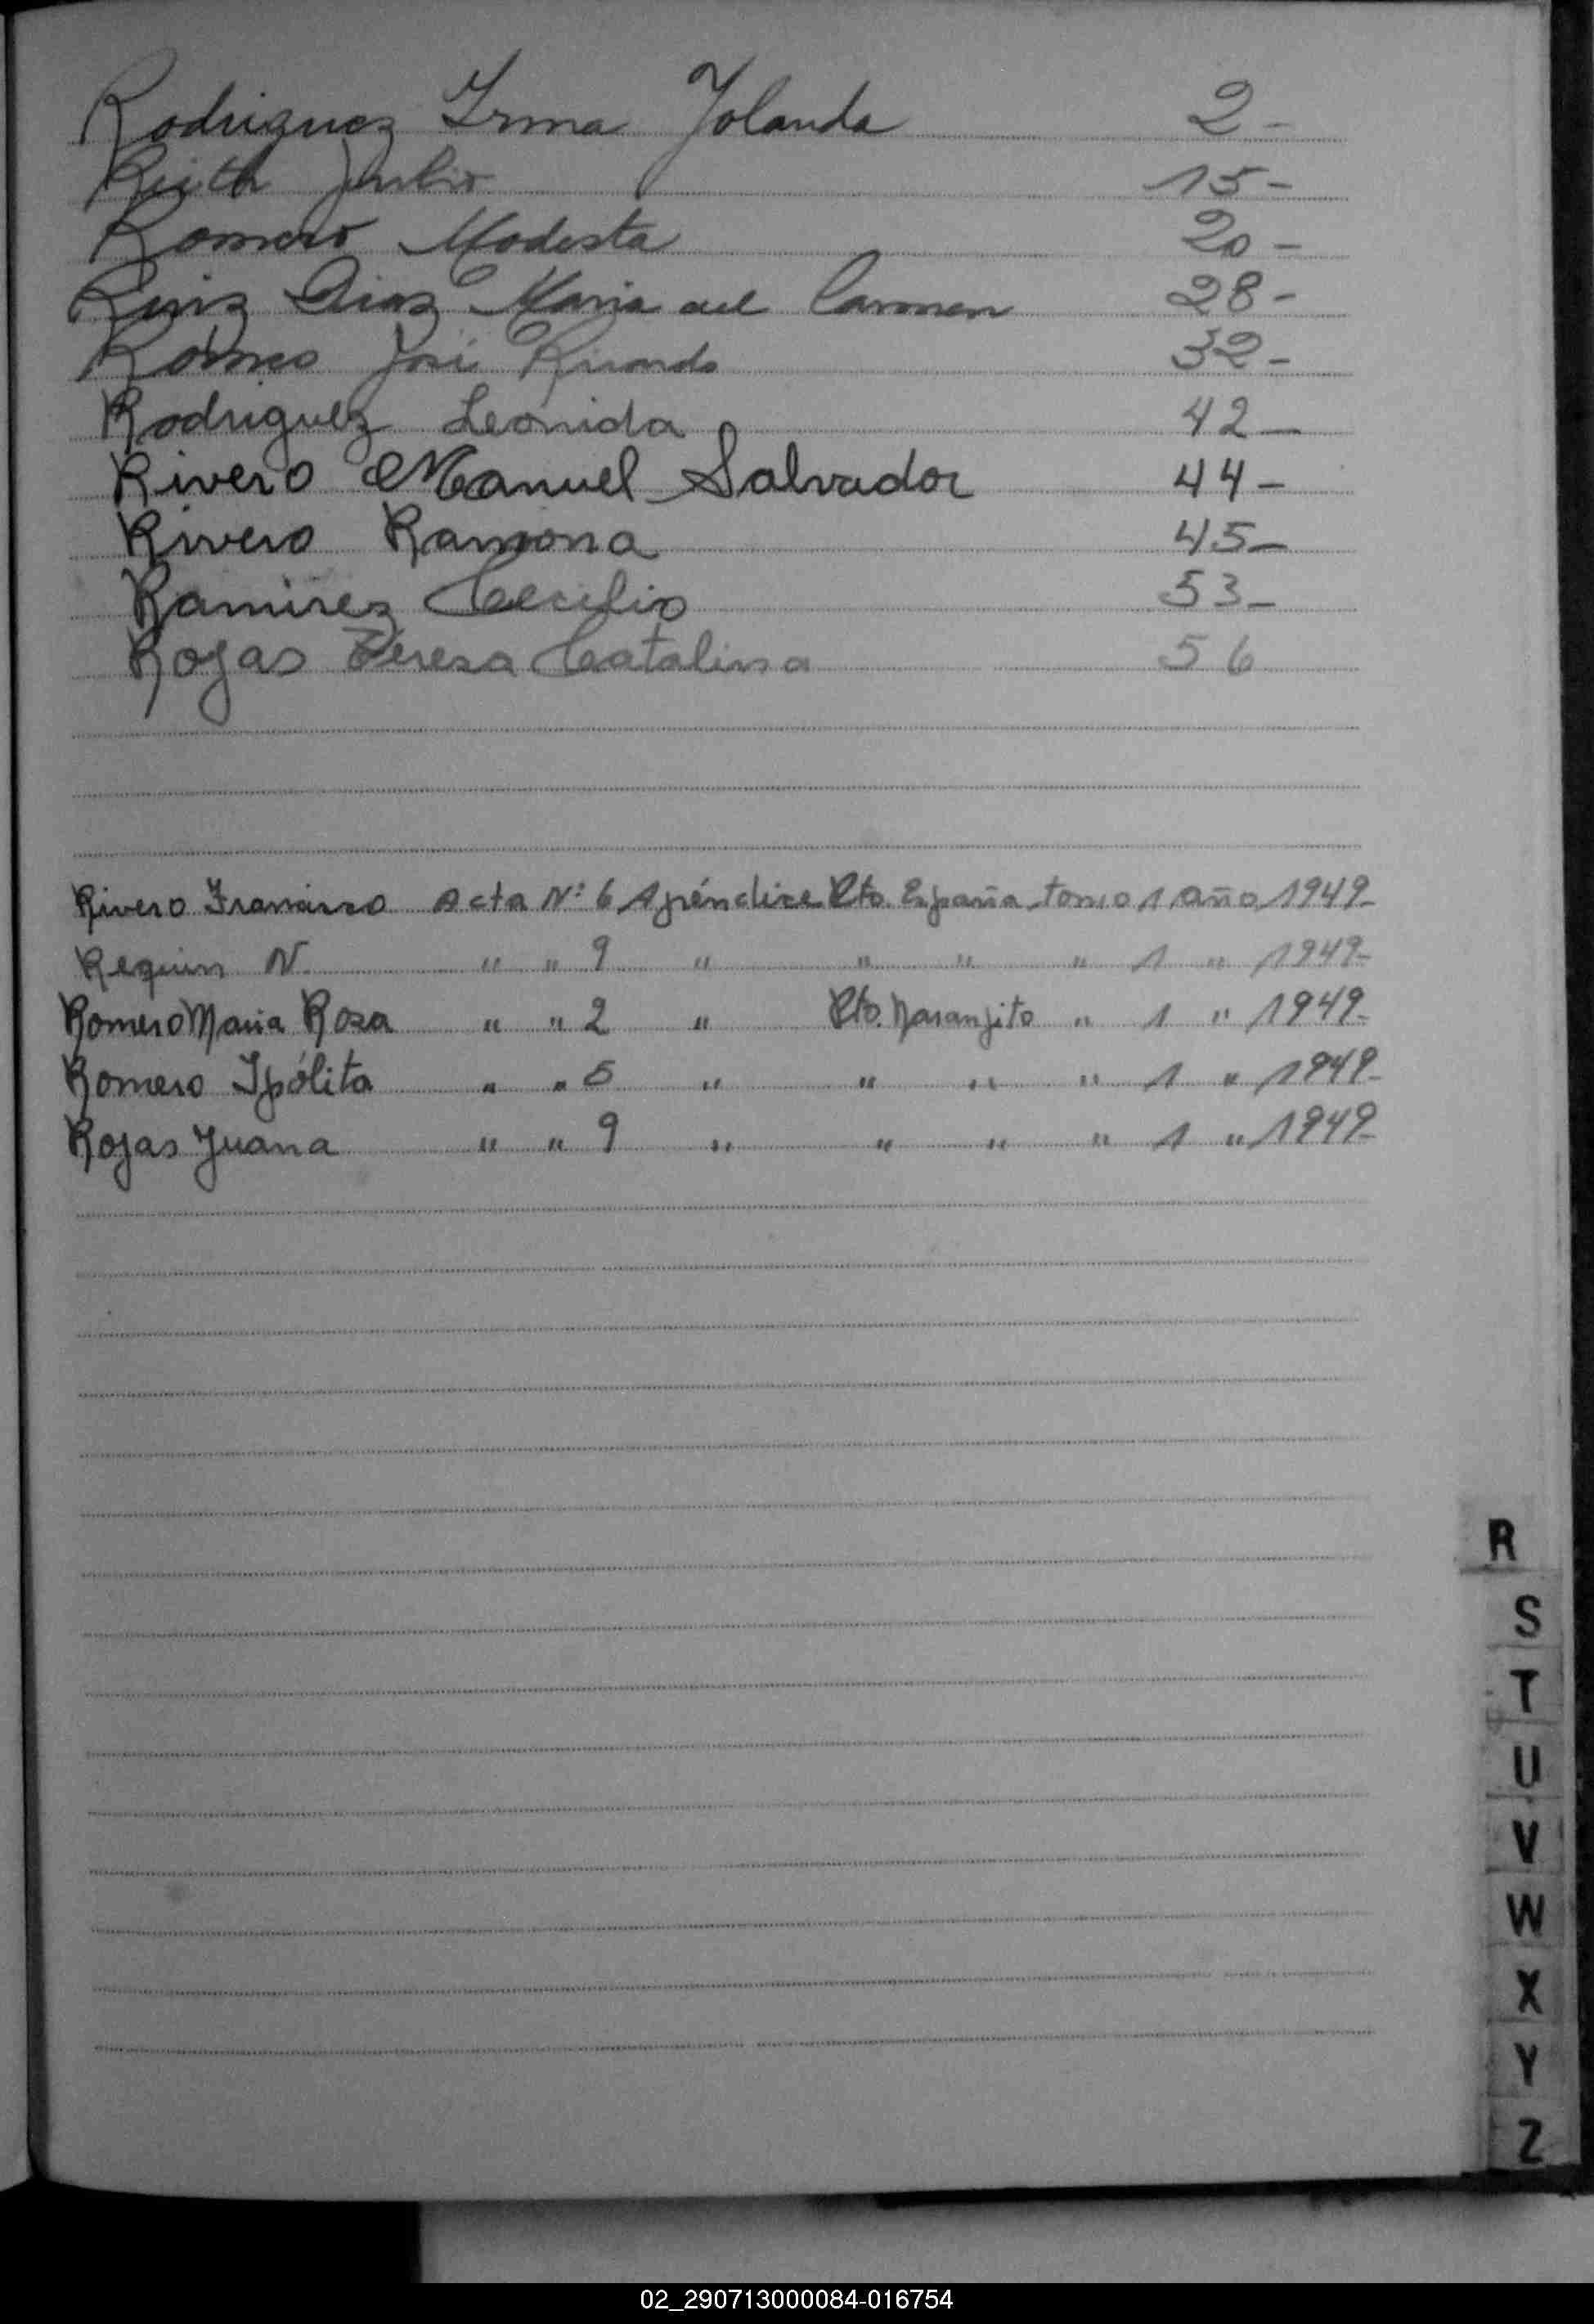 Rodriguez Irma Yolanda 2 -
Rieth Julio 15 -
Romero Modesta 20 -
Ruiz Diaz Maria del Carmen 28 -
José Ricardo 32 -
Rodriguez Leonida 42 -
Rivero Manuel Salvador 44 -
Rivero Ramona 45 -
Ramirez Cecilio 53 -
Rojas Teresa Catalina 56
Rivero Francisco Acta Nº 6 Apéndice Pto. España tomo 1 año 1949 -
Requin N. " " 9 " " " " 1 " 1949 -
Romero Maria Rosa " " 2 " Pto. Naranjito " 1 " 1949 -
Romero Ipólita " " 5 " " " " 1 " 1949 -
Rojas Juana " " 9 " " " " 1 " 1949 -
R
S
T
U
V
W
X
Y
Z
02_290713000084-016754